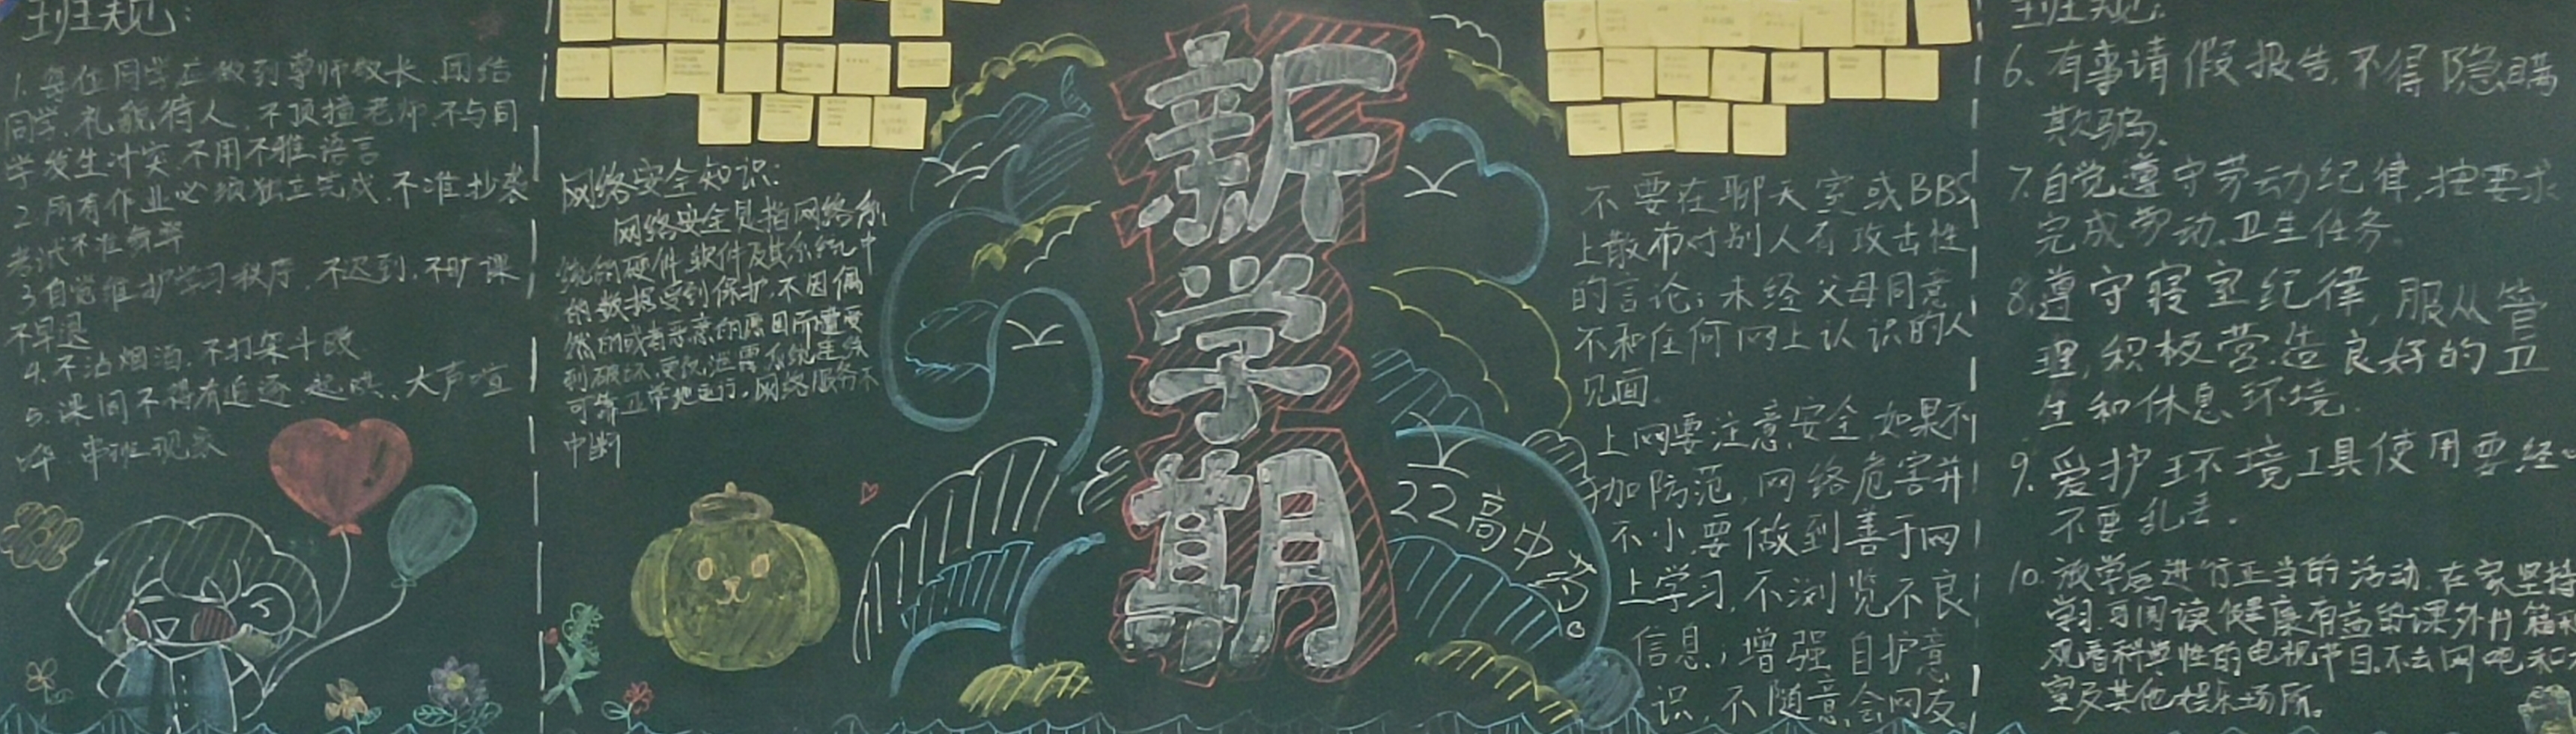 班规:
1. 每位同学应做到尊师敬长、团结
同学、礼貌待人、不顶撞老师、不与同
学发生冲突 不用不雅语言
2 所有作业必须独立完成、不准抄袭
考试不准舞弊
3 自觉维护学习秩序、不迟到、不旷课
不早退
4. 不沾烟酒、不打架斗殴
5. 课间不得有追逐、起哄、大声喧
哗 串班现象
网络安全知识:
网络安全是指网络系
统的硬件、软件及其系统中
的数据受到保护,不因偶
然的或者恶意的原因而遭受
到破坏、更改、泄露、系统连续
可靠正常地运行,网络服务不
中断
新学期
22高中
不要在聊天室或BBS
上散布对别人有攻击性
的言论;未经父母同意
不和任何网上认识的人
见面.
上网要注意安全,如果不
加防范,网络危害并
不小,要做到善于网
上学习,不浏览不良
信息;增强自护意
识,不随意会网友。
班规:
6. 有事请假报告,不得隐瞒
欺骗.
7. 自觉遵守劳动纪律,按要求
完成劳动、卫生任务.
8. 遵守寝室纪律,服从管
理,积极营造良好的卫
生和休息环境.
9. 爱护环境工具使用要经心
不要乱丢.
10. 放学后进行正当的活动,在家坚持
学习,阅读健康有益的课外书籍
观看科学性的电视节目,不去网吧和
室及其他娱乐场所。